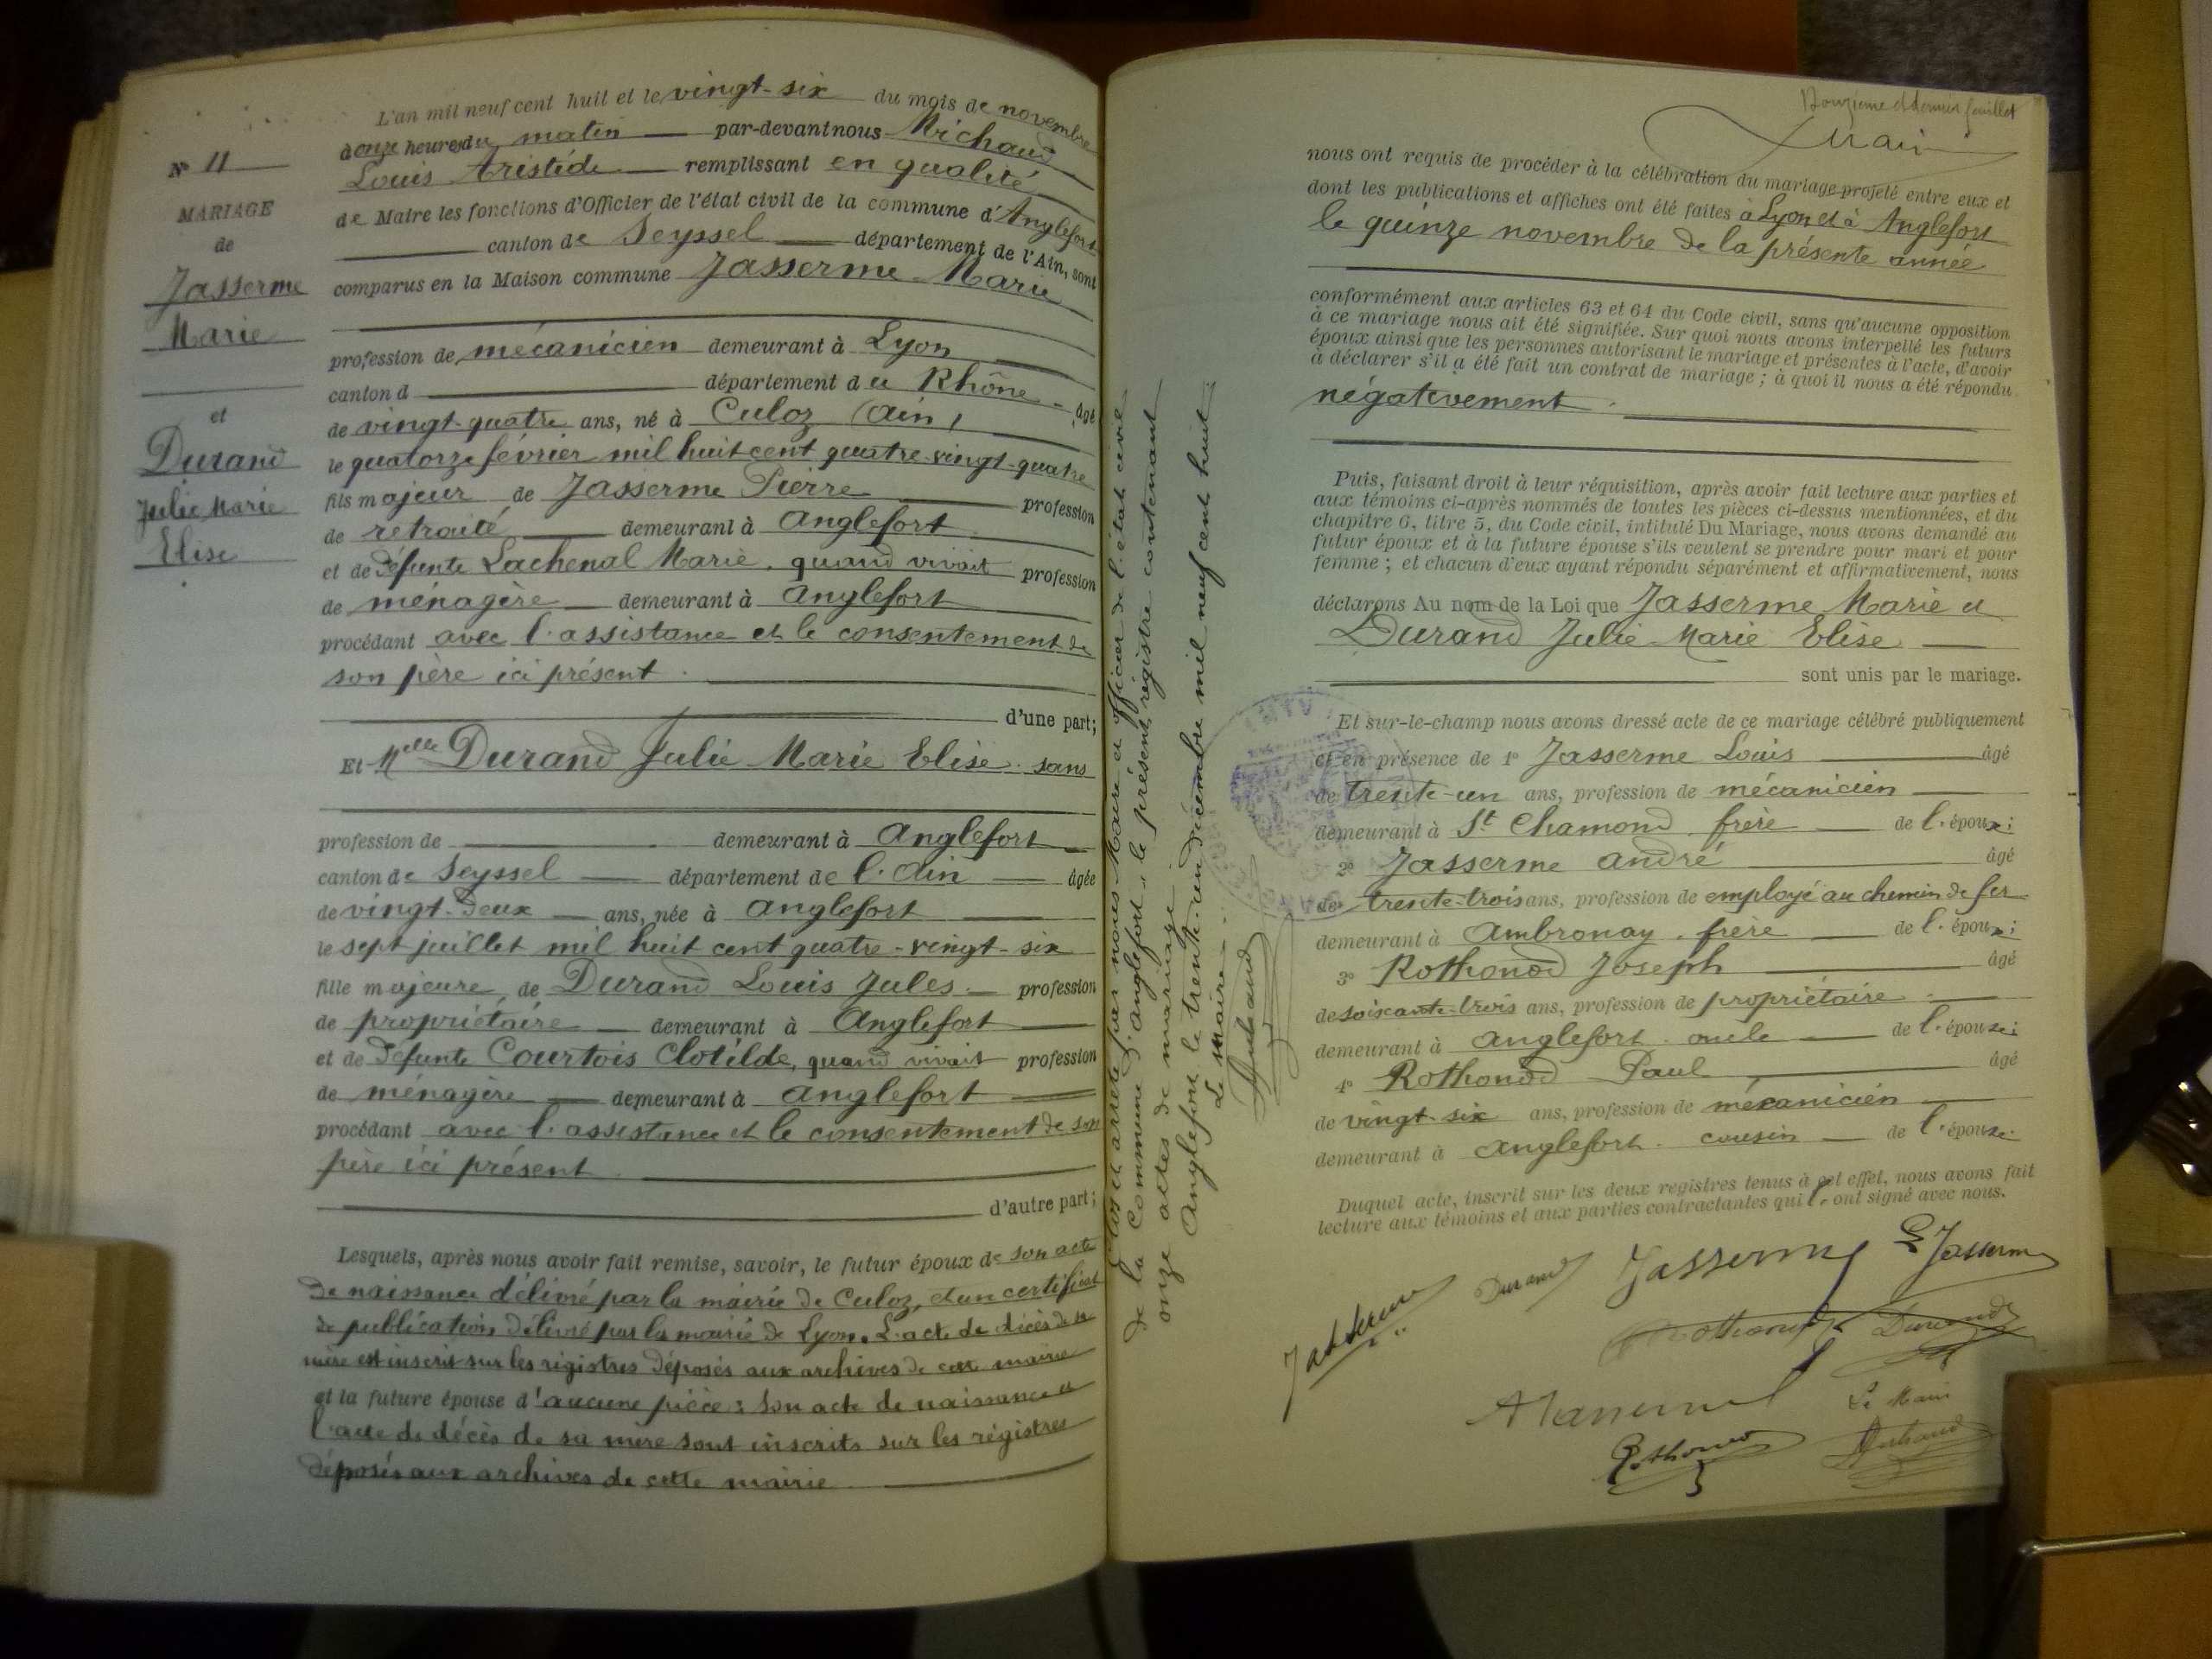 L'an mil neuf cent huit et le vingt-six du mois de novembre
à onze heures du matin par-devant nous Michaud
Louis Aristide remplissant en qualité
de Maire les fonctions d'Officier de l'état civil de la commune d'Anglefort
canton de Seyssel département de l'Ain, sont
comparus en la Maison commune Jasserme Marie
profession de mécanicien demeurant à Lyon
canton d département du Rhône âgé
de vingt-quatre ans, né à Culoz (Ain)
le quatorze février mil huit cent quatre-vingt-quatre
fils majeur de Jasserme Pierre profession
de retraité demeurant à Anglefort
et de défunte Lachenal Marie, quand vivait profession
de ménagère demeurant à Anglefort
procédant avec l'assistance et le consentement de
son père ici présent.
d'une part;
Et Melle Durand Julie Marie Elise. sans
profession de demeurant à Anglefort
canton de Seyssel département de l'Ain âgée
de vingt-deux ans, née à Anglefort
le sept juillet mil huit cent quatre-vingt-six
fille majeure de Durand Louis Jules profession
de propriétaire demeurant à Anglefort
et de défunte Courtois Clotilde, quand vivait profession
de ménagère demeurant à Anglefort
procédant avec l'assistance et le consentement de son
père ici présent
d'autre part;
Lesquels, après nous avoir fait remise, savoir, le futur époux de son acte
de naissance délivré par la mairie de Culoz, et un certificat
de publication délivré par la mairie de Lyon. L'acte de décès de sa
mère est inscrit sur les régistres déposés aux archives de cette mairie
et la future épouse d'aucune pièce : Son acte de naissance et
l'acte de décès de sa mère sont inscrits sur les régistres
déposés aux archives de cette mairie
No 11
MARIAGE
de
Jasserme
Marie
et
Durand
Julie Marie
Elise
Clos et arrêté par nous Maire et officier de l'état civil
de la commune d'Anglefort, le présent régistre contenant
onze actes de mariage.
Anglefort le trente-un décembre mil neuf cent huit
Le Maire
Douzième et dernier feuillet
nous ont requis de procéder à la célébration du mariage projeté entre eux et
dont les publications et affiches ont été faites à Lyon et à Anglefort
le quinze novembre de la présente année
conformément aux articles 63 et 64 du Code civil, sans qu'aucune opposition
à ce mariage nous ait été signifiée. Sur quoi nous avons interpellé les futurs
époux ainsi que les personnes autorisant le mariage et présentes à l'acte, d'avoir
à déclarer s'il a été fait un contrat de mariage ; à quoi il nous a été répondu
négativement.
Puis, faisant droit à leur réquisition, après avoir fait lecture aux parties et
aux témoins ci-après nommés de toutes les pièces ci-dessus mentionnées, et du
chapitre 6, titre 5, du Code civil, intitulé Du Mariage, nous avons demandé au
futur époux et à la future épouse s'ils veulent se prendre pour mari et pour
femme ; et chacun d'eux ayant répondu séparément et affirmativement, nous
déclarons Au nom de la Loi que Jasserme Marie et
Durand Julie Marie Elise
sont unis par le mariage.
Et sur-le-champ nous avons dressé acte de ce mariage célébré publiquement
et en présence de 1o Jasserme Louis âgé
de trente-un ans, profession de mécanicien
demeurant à St Chamond frère de l'époux;
2o Jasserme André âgé
de trente-trois ans, profession de employé au chemin de fer
demeurant à Ambronay. frère de l'époux;
3o Rothonod Joseph âgé
de soixante-trois ans, profession de propriétaire
demeurant à Anglefort. oncle de l'épouse;
4o Rothonod Paul âgé
de vingt-six ans, profession de mécanicien
demeurant à Anglefort. cousin de l'épouse.
Duquel acte, inscrit sur les deux registres tenus à cet effet, nous avons fait
lecture aux témoins et aux parties contractantes qui l'ont signé avec nous.
Jasserme Durand Jasserme L Jasserme
Rothonod Durand
Le Maire
Rothonod